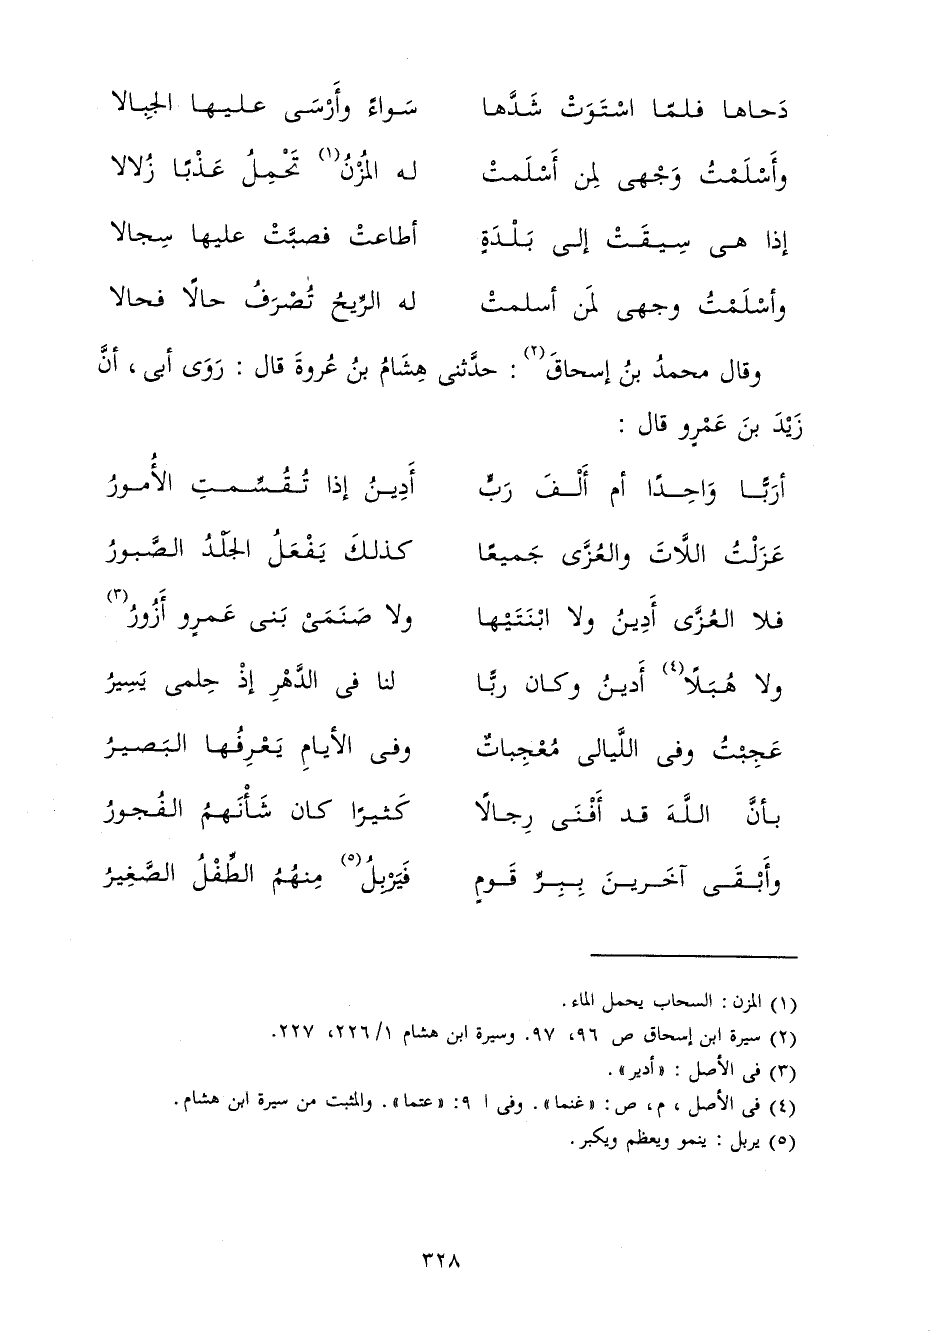 دَحاها فلمّا اسْتَوَتْ شَدَّها سَواءً وأَرْسَى عليها الجِبالا
وأَسْلَمْتُ وَجْهى لِمن أَسْلَمتْ له المُزْنُ(١) تَحْمِلُ عَذْبًا زُلالا
إذا هى سِيقَتْ إلى بَلْدَةٍ أطاعتْ فصبَّتْ عليها سِجالا
وأسْلَمْتُ وجهى لمَن أسلمتْ له الرِّيحُ تُصْرَفُ حالًا فحالا
وقال محمدُ بنُ إسحاقَ(٢) : حدَّثنى هِشَامُ بنُ عُروةَ قال : رَوَى أبى ، أنَّ
زَيْدَ بنَ عَمْرٍو قال :
أرَبًّا وَاحِدًا أم أَلْفَ رَبٍّ أَدِينُ إذا تُقُسِّمتِ الأُمورُ
عَزَلْتُ اللَّاتَ والعُزَّى جَميعًا كذلكَ يَفْعَلُ الجَلْدُ الصَّبورُ
فلا العُزَّى أَدِينُ ولا ابْنَتَيْها ولا صَنَمَىْ بَنى عَمرٍو أَزُورُ(٣)
ولا هُبَلًا(٤) أَدينُ وكان ربًّا لنا فى الدَّهْرِ إذْ حِلمى يَسِيرُ
عَجِبْتُ وفى اللَّيالى مُعْجِباتٌ وفى الأيامِ يَعْرِفُها البَصيرُ
بأنَّ اللَّهَ قد أَفْنَى رِجالًا كَثيرًا كان شَأْنَهمُ الفُجورُ
وأَبْقَى آخَرينَ بِبِرِّ قَومٍ فيَرْبِلُ(٥) مِنهُمُ الطِّفْلُ الصَّغِيرُ
(١) المزن : السحاب يحمل الماء .
(٢) سيرة ابن إسحاق ص ٩٦، ٩٧. وسيرة ابن هشام ١/ ٢٢٦، ٢٢٧.
(٣) فى الأصل : «أدير» .
(٤) فى الأصل ، م، ص: «غنما» . وفى ا ٩: «عتما» . والمثبت من سيرة ابن هشام .
(٥) يربل : ينمو ويعظم ويكبر .
٣٢٨